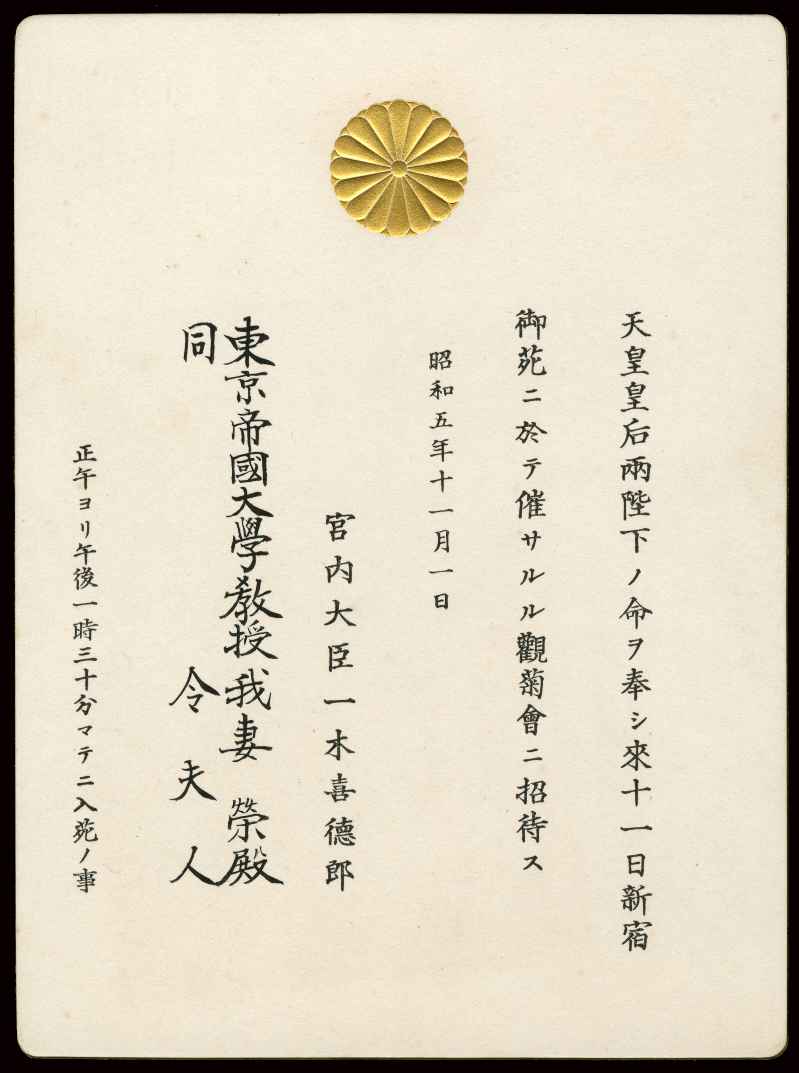 天皇皇后兩陛下ノ命ヲ奉シ來十一日新宿
御苑ニ於テ催サルル觀菊會ニ招待ス
昭和五年十一月一日
宮内大臣一木喜德郎
東京帝國大學教授我妻榮殿
同令夫人
正午ヨリ午後一時三十分マテニ入苑ノ事